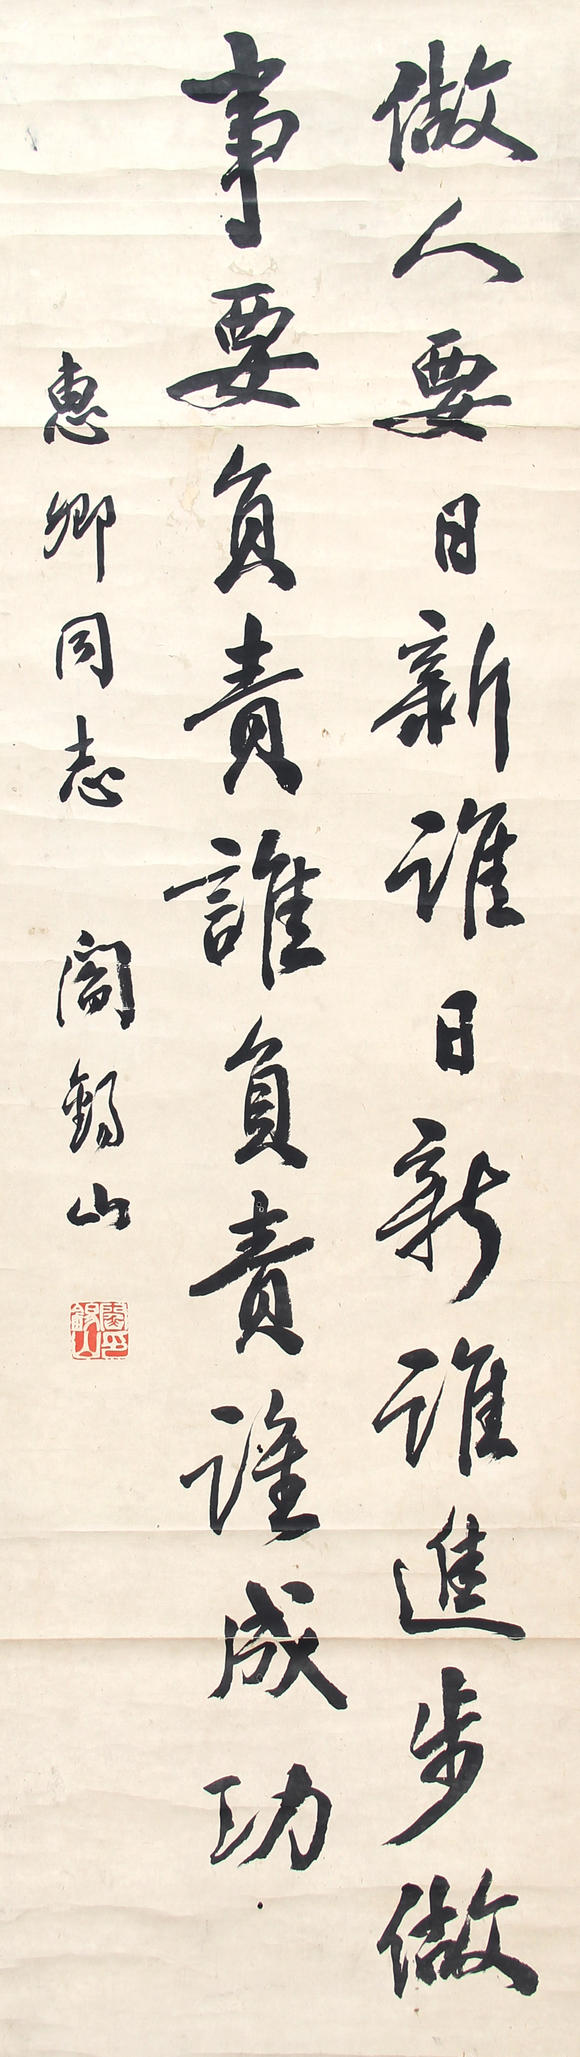 做人要日新誰日新誰進步做
事要負責誰負責誰成功
惠卿同志 閻錫山
閻錫山印